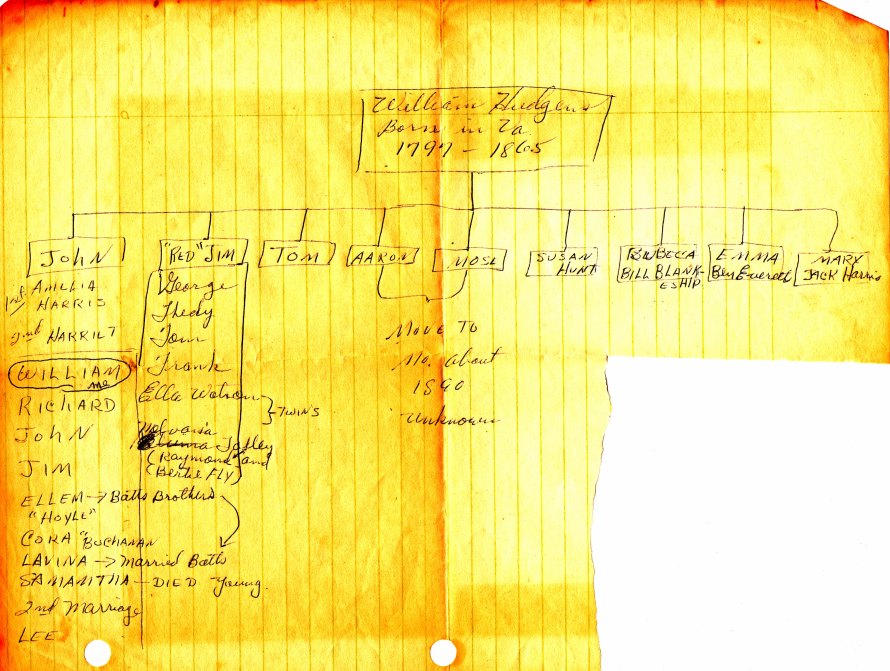 William Hudgens
Born in Va.
1797 - 1865
JOHN
"RED" JIM
TOM
AARON
MOSE
SUSAN
HUNT
REBECCA
BILL BLANK-
ESHIP
EMMA
Ben Everett
MARY
JACK Harris
1st AMELIA
HARRIS
2nd HARRIET
WILLIAM
RICHARD
JOHN
JIM
ELLEM → Batts Brothers
"HOYLE"
CORA "BUCHANAN
LAVINA → Married Batts
SAMANTHA - DIED Young.
2nd Marriage
LEE
George
Thedy
Tom
Frank
Ella Watson
TWINS
(Raymond and
(Bertie FLY)
MOVE TO
Mo. about
1890
Unknown